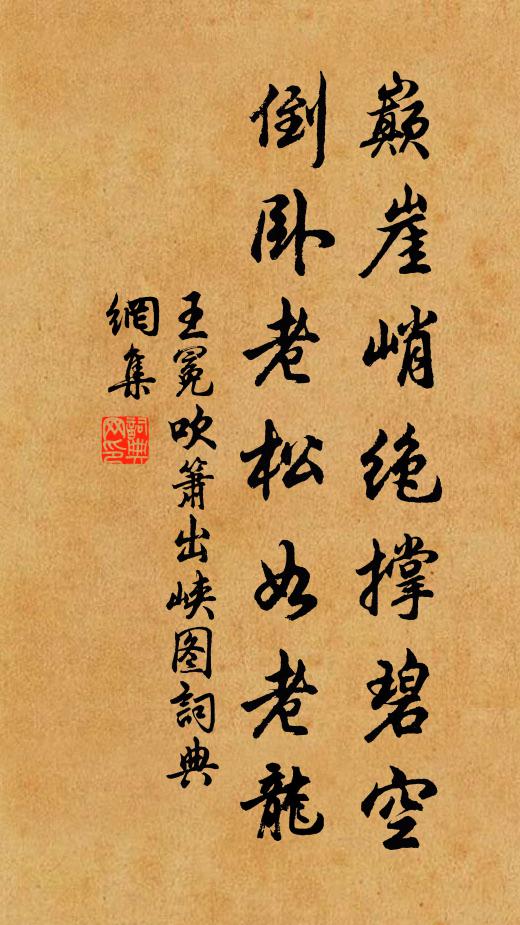 巔崖峭绝撑碧空
倒卧老松如老龍
王冕吹簫出峡图詞典
網集
詞典
网印